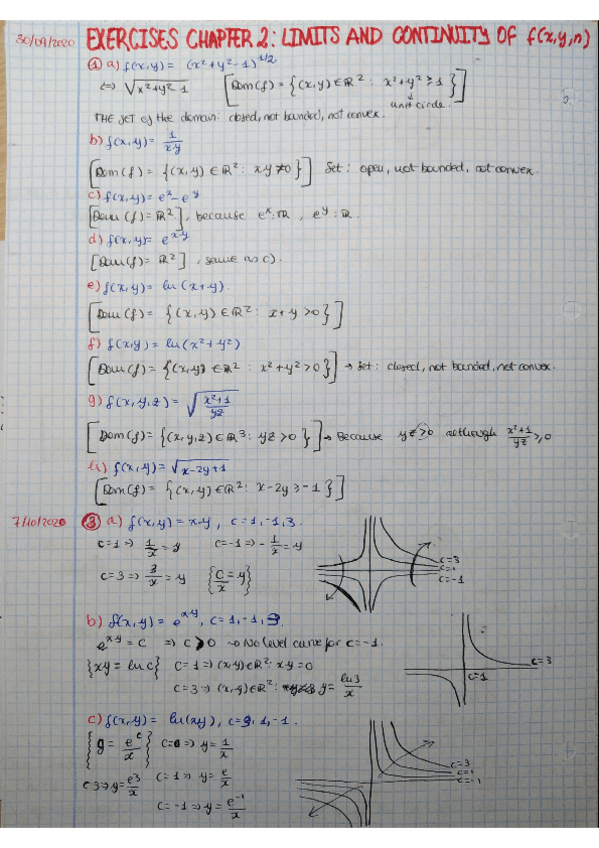 30/09/2020 EXERCISES CHAPTER 2: LIMITS AND CONTINUITY OF f(x,y,n)
① a) f(x,y) = (x²+y²-1)^1/2
⇔ √x²+y²-1 [Dom(f) = {(x,y) ∈ ℝ² : x²+y² ≥ 1}]
unit circle.
THE SET of the domain: closed, not bounded, not convex.
b) f(x,y) = 1/xy
[Dom(f) = {(x,y) ∈ ℝ² : xy ≠ 0}] Set: open, not bounded, not convex.
c) f(x,y) = e^x - e^y
[Dom(f) = ℝ²], because e^x: ℝ, e^y: ℝ.
d) f(x,y) = e^x-y
[Dom(f) = ℝ²], same as c).
e) f(x,y) = ln(x+y).
[Dom(f) = {(x,y) ∈ ℝ² : x+y > 0}]
f) f(x,y) = ln(x²+y²)
[Dom(f) = {(x,y) ∈ ℝ² : x²+y² > 0}] → Set: closed, not bounded, not convex.
g) f(x,y,z) = √(x²+1)/yz
[Dom(f) = {(x,y,z) ∈ ℝ³ : yz > 0}] → Because yz > 0 although (x²+1)/yz ≥ 0
h) f(x,y) = √x-2y+1
[Dom(f) = {(x,y) ∈ ℝ² : x-2y ≥ -1}]
7/10/2020 ③ a) f(x,y) = x·y, c = 1, -1, 3.
c=1 ⇒ 1/x = y c=-1 ⇒ -1/x = y
c=3 ⇒ 3/x = y {c/x = y}
c=3
c=1
c=-1
b) f(x,y) = e^xy, c = 1, -1, 3.
e^xy = c ⇒ c > 0 → No level curve for c=-1.
{xy = ln c} c=1 ⇒ (x,y) ∈ ℝ² : xy = 0
c=3 ⇒ (x,y) ∈ ℝ² : y = ln3/x
c=3
c=1
c) f(x,y) = ln(xy), c = 3, 1, -1.
{y = e^c/x} c=0 ⇒ y = 1/x
c 3 ⇒ y = e³/x c=1 ⇒ y = e/x
c=-1 ⇒ y = e^-1/x
c=3
c=1
c=-1